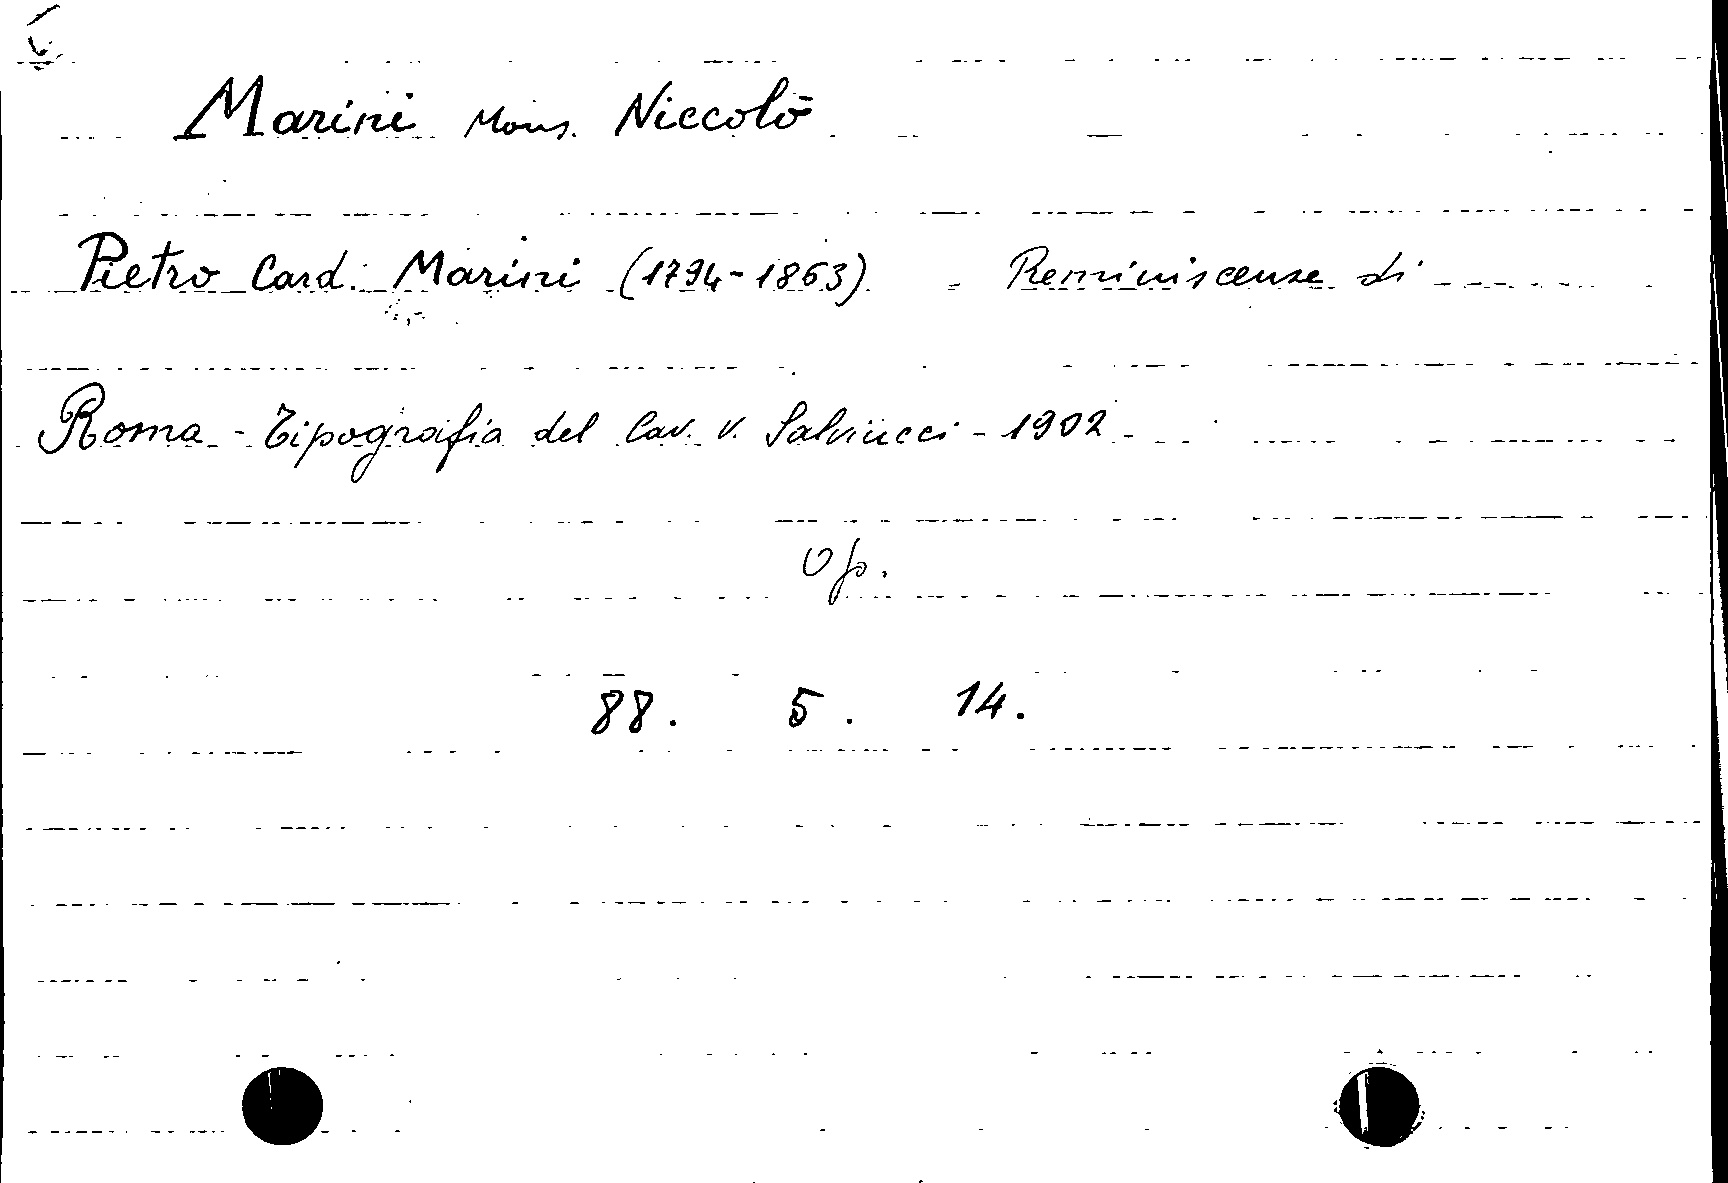 Marini Mons. Niccolò
Pietro Card. Marini (1794-1863) - Reminiscenze di
Roma - Tipografia del Cav. V. Salviucci - 1902
Op.
88. 5. 14.